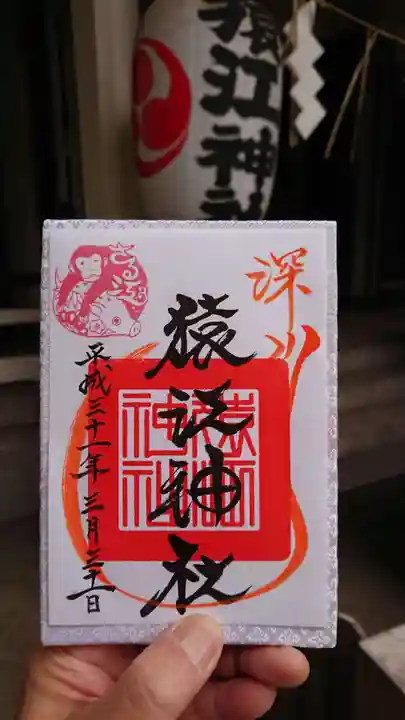 猿江神社
深川
さるえ
猿江神社
猿江
神社
平成三十一年三月三十一日